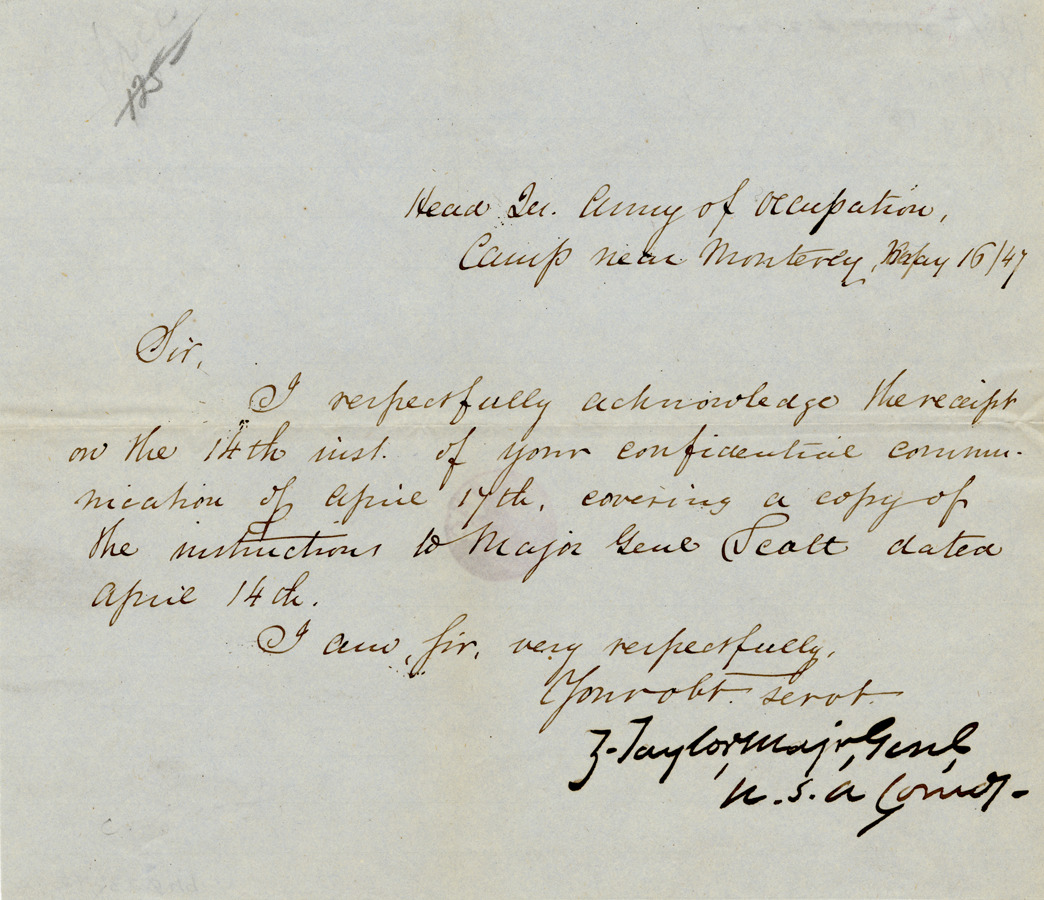 125
Head Qu. Army of Occupation,
Camp near Monterey, May 16/47
Sir,
I respectfully acknowledge the receipt
on the 14th inst. of your confidential commu-
nication of April 17th, covering a copy of
the instructions to Major Genl Scott dated
April 14th.
I am, Sir, very respectfully,
Your obt. servt.
Z. Taylor, Majr, Genl,
U.S.A Comdg.